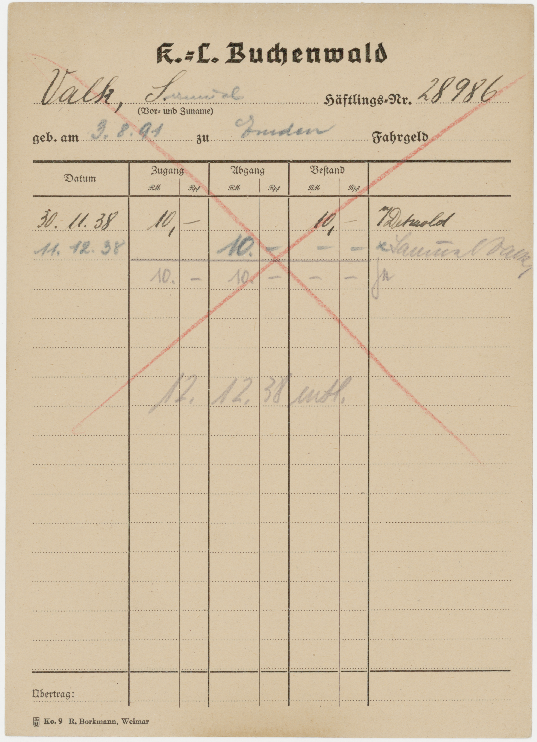 K.-L. Buchenwald
Valk, Samuel
(Vor- und Zuname)
Häftlings-Nr. 28986
geb. am 3.8.91 zu Emden Fahrgeld
Datum Zugang Abgang Bestand
RM Rpf RM Rpf RM Rpf
30. 11. 38 10,- 10,- Detmold
11. 12. 38 10. - - - Samuel Valk
10. - 10. -
12. 12. 38 entl.
Übertrag:
Ko. 9 R. Borkmann, Weimar